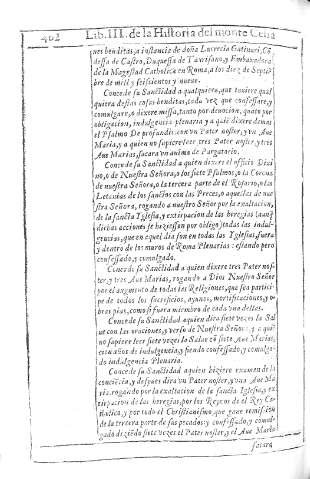 402 Lib. III. de la Historia del monte Celia
nes benditas, a instancia de doña Lucrecia Gatinari, Cõ
dessa de Castro, Duquessa de Taurisano, y Embaxadora
de la Magestad Catholica en Roma, a los diez de Septiẽ
bre de mil y seiscientos y nueue.
Concede su Sanctidad a qualquiera, que tuuiere qual
quiera destas cosas benditas, toda vez que confessare, y
comulgare, o dixere missa, tanto por deuocion, quato por
obligacion, indulgencia plenaria y a quiẽ dixere demas
el Psalmo De profundis con vn Pater noster, y vn Aue
Maria, y a quien no supiere, rese tres Pater noster, y tres
Aue Marias, sacara vn anima de Purgatorio.
Concede su Sanctidad a quien dixere el officio Diui
no, o de Nuestra Señora, o los siete Psalmos, o la Corona
de nuestra Señora, o la tercera parte de el Rosario, o las
Letanias de los sanctos con las Preces, o aquellas de nue
stra Señora, rogando a nuestro Señor por la exaltacion,
de la sancta Iglesia, y extirpacion de las heregias (aunq̃
dichas acciones se hiziessen por obligo) todas las indul-
gencias, que en aquel dia son en todas las Iglesias, fuera
y dentro de los muros de Roma Plenarias: estando pero
confessado, y comulgado.
Concede su Sanctidad a quien dixere tres Pater nos-
ter, y tres Aue Marias, rogando a Dios Nuestro Señor
por el augmento de todas las Religiones, que sea partici-
pe de todos los sacrificios, ayunos, mortificaciones, y o-
bras pias, como si fuera miembro de cada vna dellas.
Concede su Sanctidad a quien dira siete vezes la Sal
ue con las oraciones, y verso de Nuestra Señora: y a quiẽ
no supiere leer siete vezes la Salue cõ siete Aue Marias,
años de indulgencia, y siendo confessado, y comulga-
do indulgencia Plenaria.
Concede su Sanctidad a quien hiziere examen de la
conciẽcia, y despues dira vn Pater noster, y vna Aue Ma
ria, rogando por la exaltacion de la sancta Iglesia, ex
tirpacion de las heregias, por los Reynos de el Rey Ca-
tholico, y por todo el Christianismo, que gane remission
de la tercera parte de sus pecados; y confessado, y comul-
gado diziẽdo siete vezes el Pater noster, y el Aue Maria
sacara